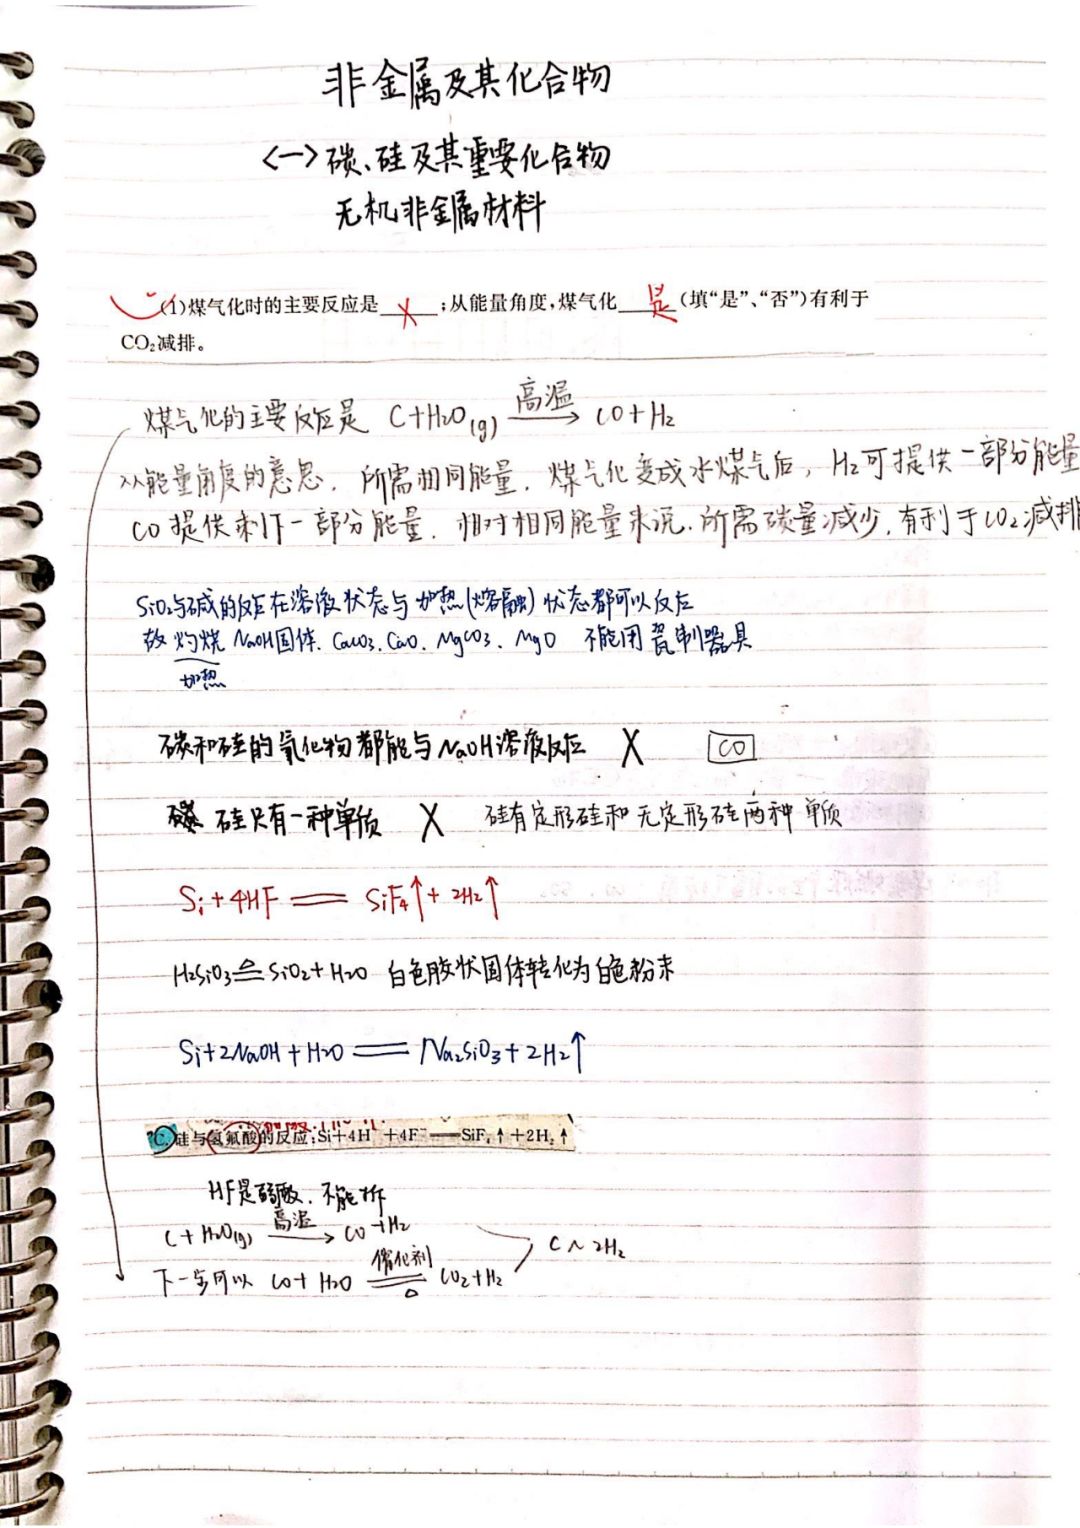 非金属及其化合物
<一>碳、硅及其重要化合物
无机非金属材料
(1)煤气化时的主要反应是 X ;从能量角度,煤气化 是 (填“是”、“否”)有利于
CO₂减排。
煤气化的主要反应是 C+H₂O(g) 高温→ CO+H₂
从能量角度的意思. 所需相同能量. 煤气化变成水煤气后, H₂可提供一部分能量
CO提供剩下一部分能量. 相对相同能量来说.所需碳量减少,有利于CO₂减排
SiO₂与碱的反应在溶液状态与加热(熔融)状态都可以反应
故灼烧NaOH固体. CaCO₃. CaO. MgCO₃. MgO 不能用瓷制器具
加热
碳和硅的氧化物都能与NaOH溶液反应 X CO
硅只有一种单质 X 硅有定形硅和无定形硅两种单质
Si+4HF══SiF₄↑+2H₂↑
H₂SiO₃≜SiO₂+H₂O 白色胶状固体转化为白色粉末
Si+2NaOH+H₂O══Na₂SiO₃+2H₂↑
C.硅与氢氟酸的反应:Si+4H⁺+4F⁻══SiF₄↑+2H₂↑
HF是弱酸.不能拆
C+H₂O(g) 高温→ CO+H₂
下一步可以 CO+H₂O 催化剂══△ CO₂+H₂ C～2H₂